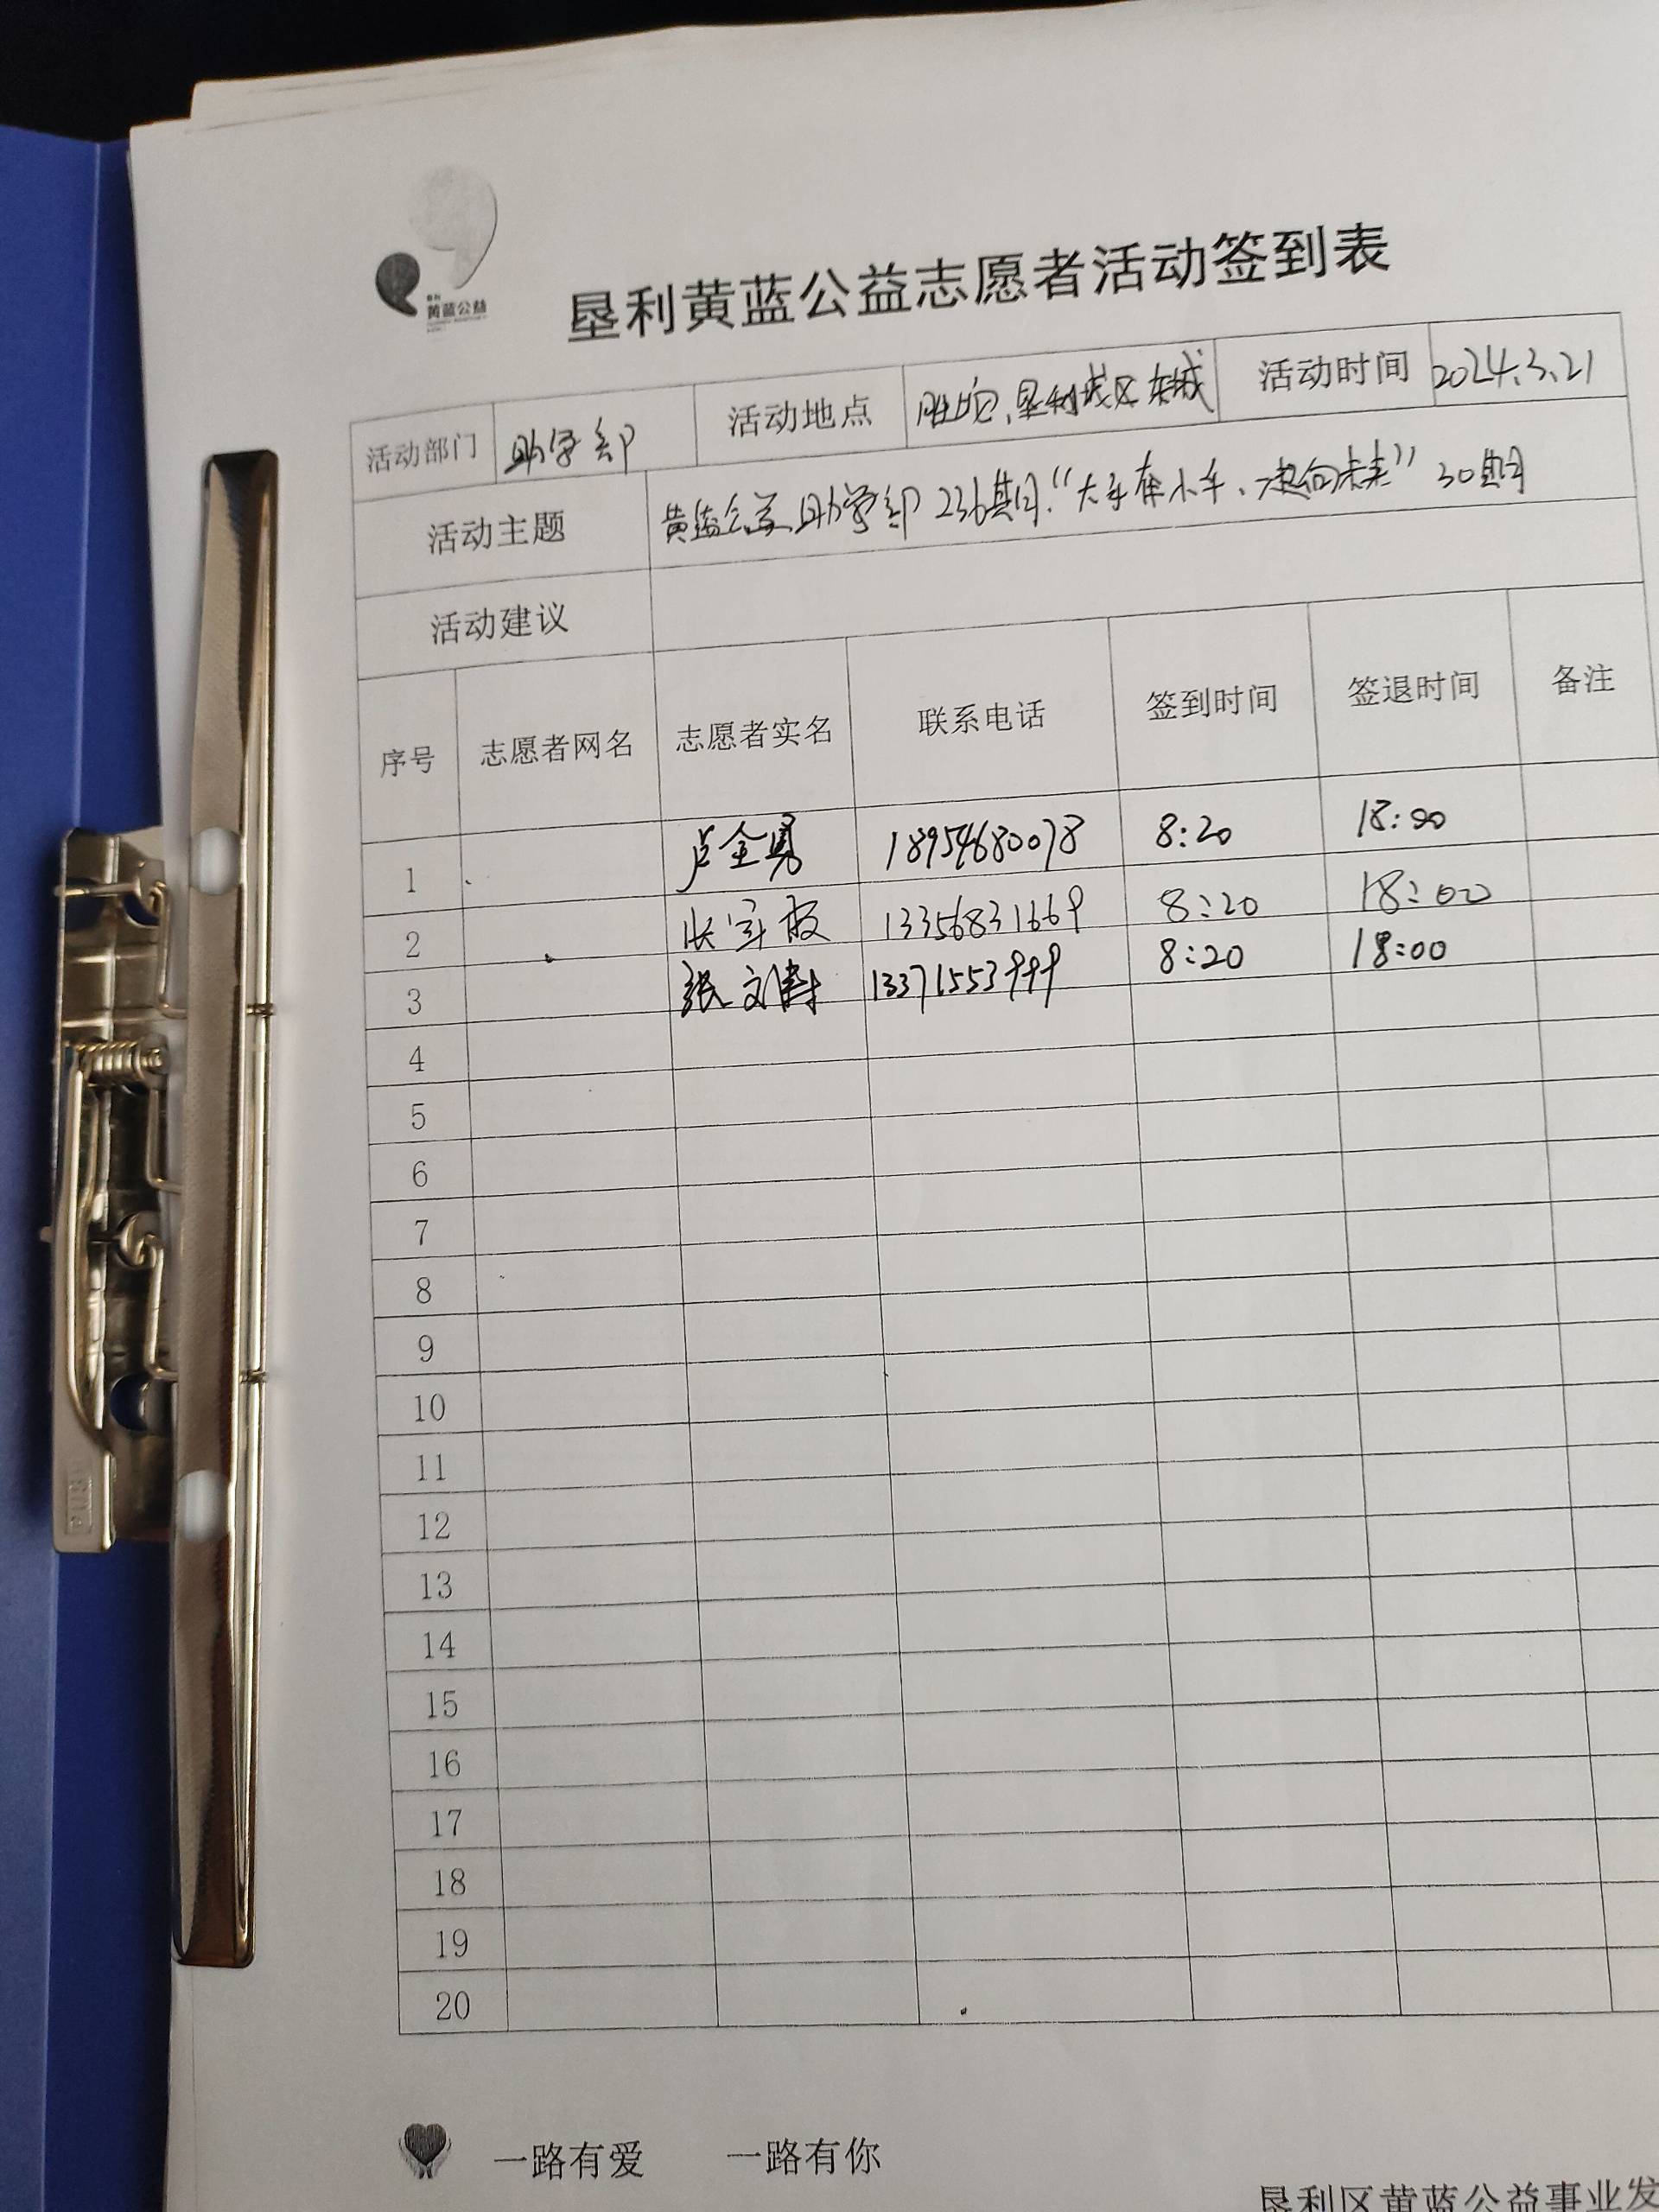 黄蓝公益
垦利黄蓝公益志愿者活动签到表
活动部门 助学部 活动地点 胜坨、垦利城区、东城 活动时间 2024.3.21
活动主题 黄蓝公益助学部236期."大手牵小手、一起向未来"30期
活动建议
序号 志愿者网名 志愿者实名 联系电话 签到时间 签退时间 备注
1 卢全勇 18954680078 8:20 18:00
2 13356831669 8:20 18:00
3 张文 13371553999 8:20 18:00
4
5
6
7
8
9
10
11
12
13
14
15
16
17
18
19
20
一路有爱 一路有你
垦利区黄蓝公益事业发
PUSH